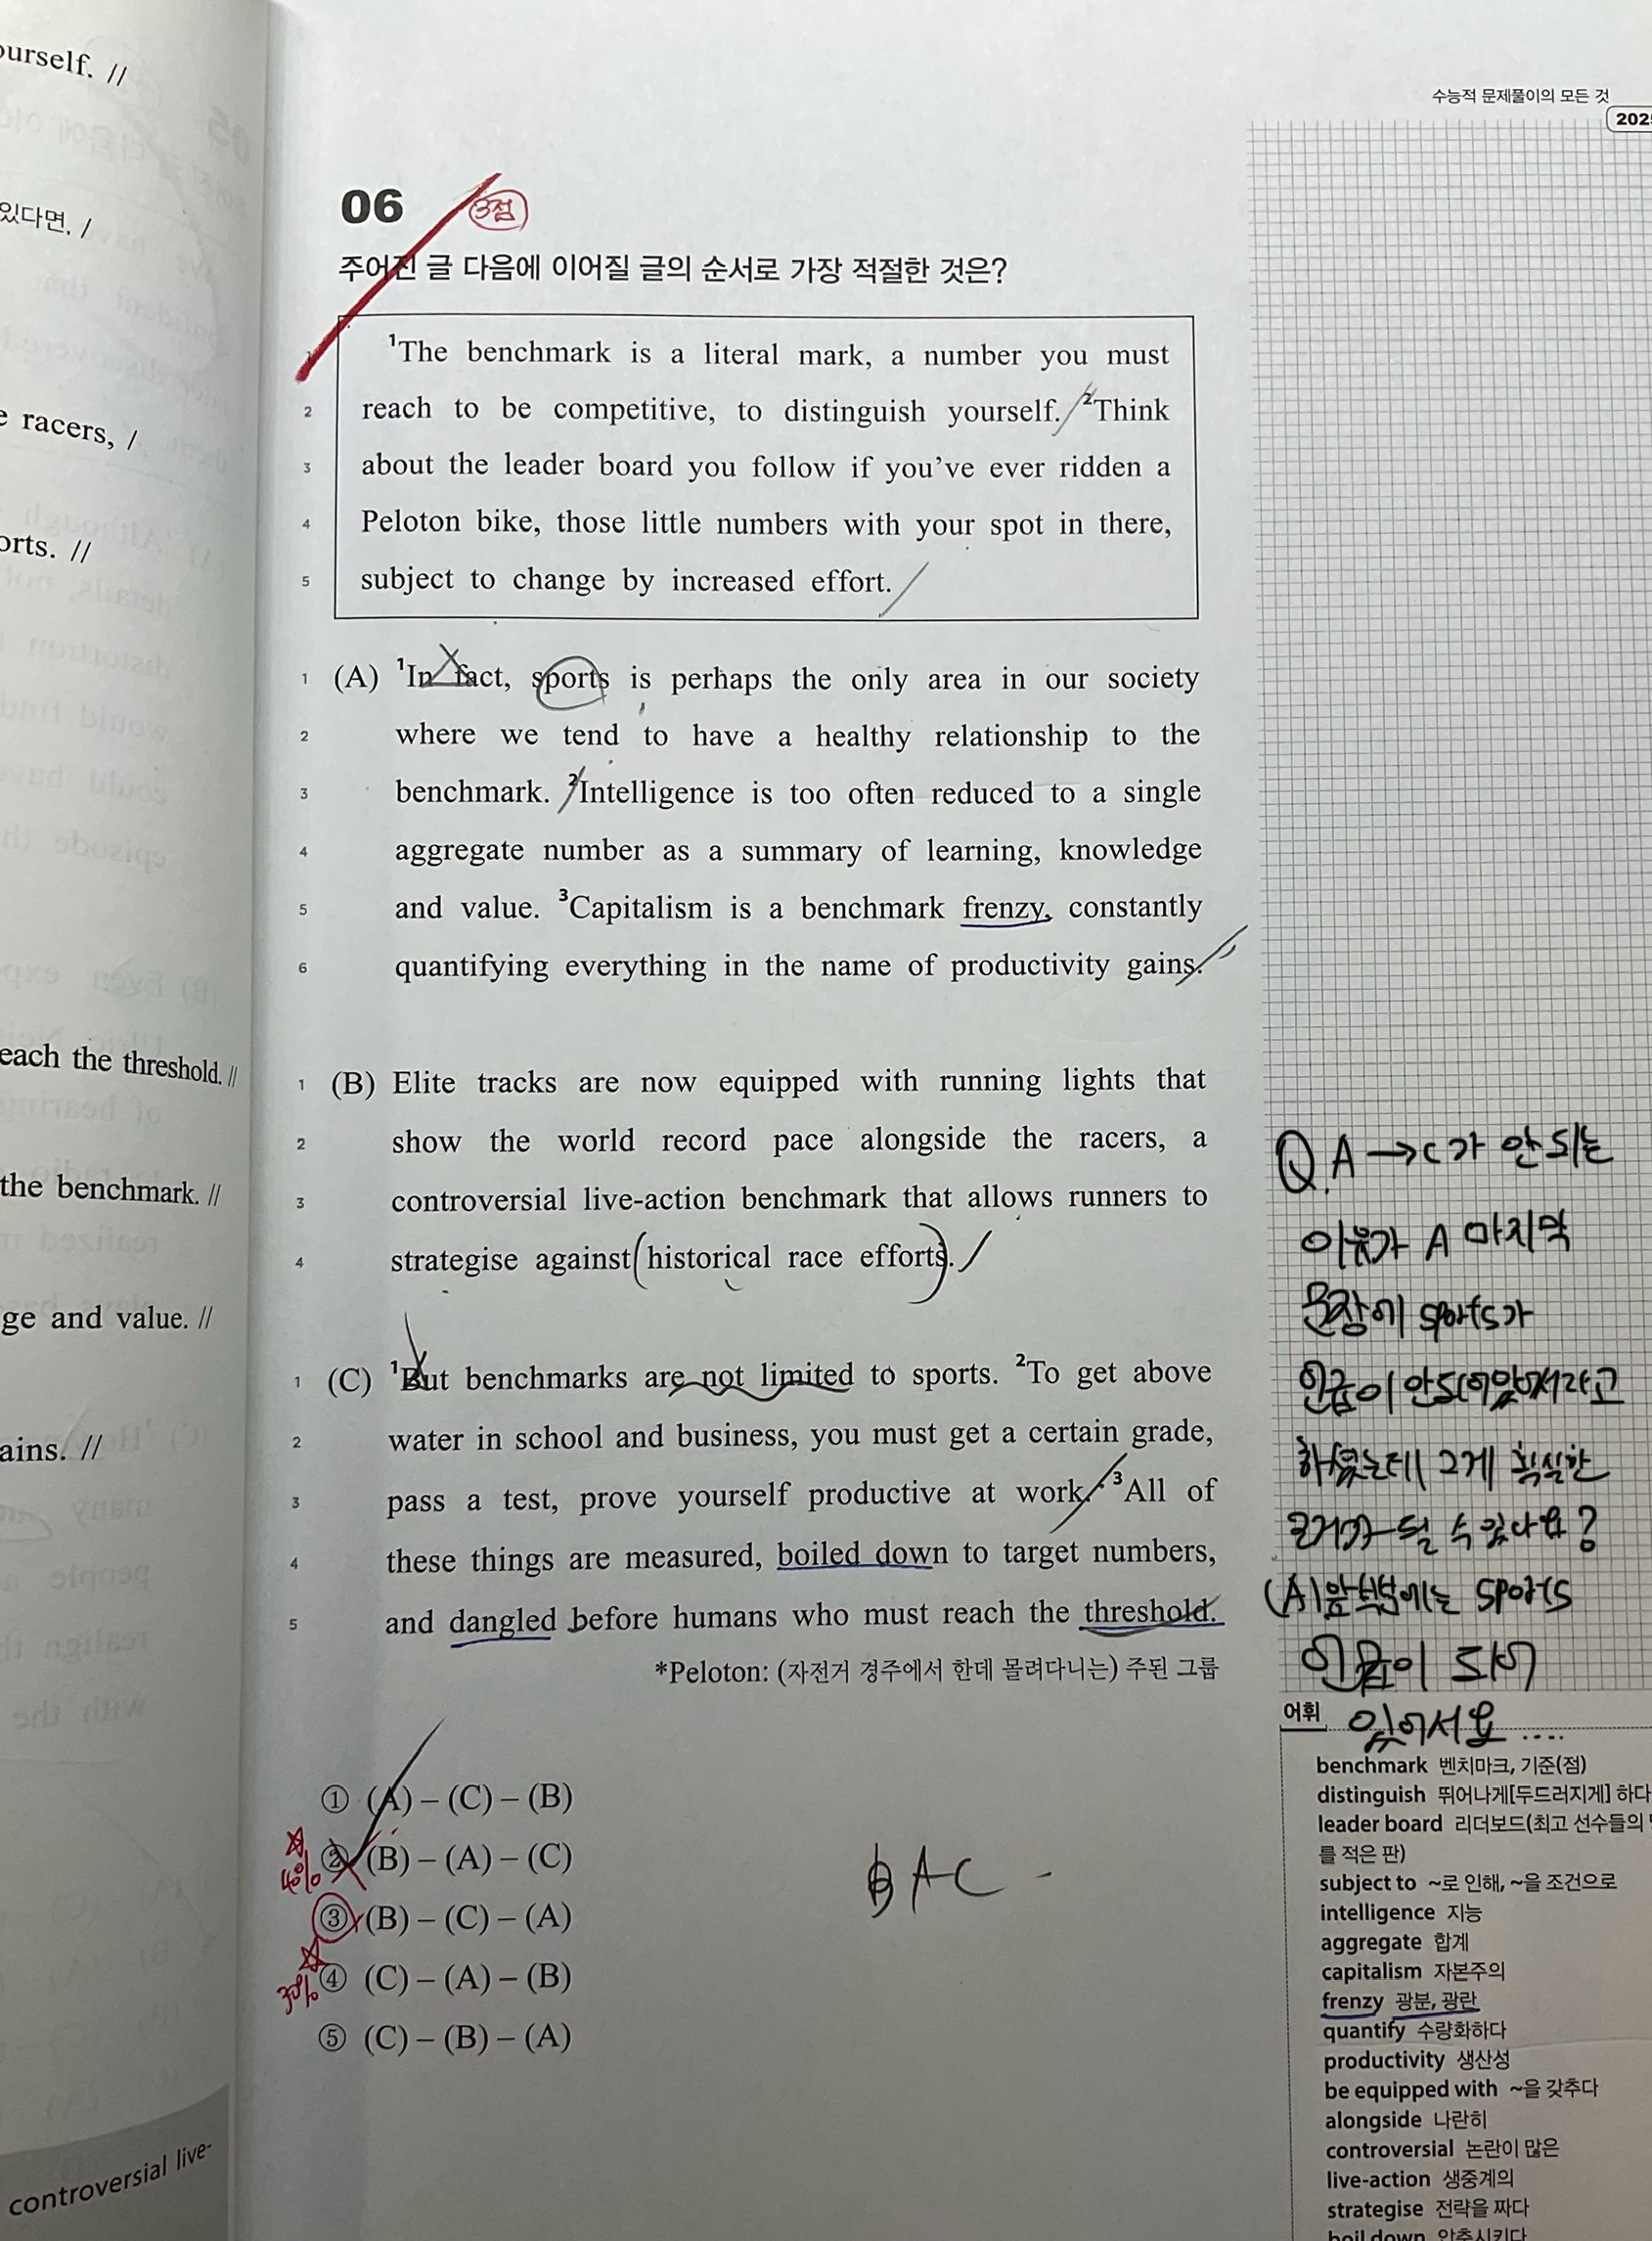 ourself. //
있다면, /
e racers, /
orts. //
each the threshold. //
the benchmark. //
ge and value. //
ains. //
controversial live-
수능적 문제풀이의 모든 것
06
3점
주어진 글 다음에 이어질 글의 순서로 가장 적절한 것은?
1The benchmark is a literal mark, a number you must
2 reach to be competitive, to distinguish yourself. 2Think
3 about the leader board you follow if you've ever ridden a
4 Peloton bike, those little numbers with your spot in there,
5 subject to change by increased effort.
1 (A) 1In fact, sports is perhaps the only area in our society
2 where we tend to have a healthy relationship to the
3 benchmark. 2Intelligence is too often reduced to a single
4 aggregate number as a summary of learning, knowledge
5 and value. 3Capitalism is a benchmark frenzy, constantly
6 quantifying everything in the name of productivity gains.
1 (B) Elite tracks are now equipped with running lights that
2 show the world record pace alongside the racers, a
3 controversial live-action benchmark that allows runners to
4 strategise against historical race efforts.
1 (C) 1But benchmarks are not limited to sports. 2To get above
2 water in school and business, you must get a certain grade,
3 pass a test, prove yourself productive at work. 3All of
4 these things are measured, boiled down to target numbers,
5 and dangled before humans who must reach the threshold.
*Peloton: (자전거 경주에서 한데 몰려다니는) 주된 그룹
① (A) – (C) – (B)
② (B) – (A) – (C)
40%
③ (B) – (C) – (A)
④ (C) – (A) – (B)
30%
⑤ (C) – (B) – (A)
BAC
Q. A → C가 안 되는
이유가 A 마지막
문장에 sports가
언급이 안되어있어서라고
하셨는데 그게 확실한
근거가 될 수 있나요?
(A)앞부분에는 sports
언급이 되어
있어서요 ....
어휘
benchmark 벤치마크, 기준(점)
distinguish 뛰어나게[두드러지게] 하다
leader board 리더보드(최고 선수들의
를 적은 판)
subject to ~로 인해, ~을 조건으로
intelligence 지능
aggregate 합계
capitalism 자본주의
frenzy 광분, 광란
quantify 수량화하다
productivity 생산성
be equipped with ~을 갖추다
alongside 나란히
controversial 논란이 많은
live-action 생중계의
strategise 전략을 짜다
boil down 압축시키다